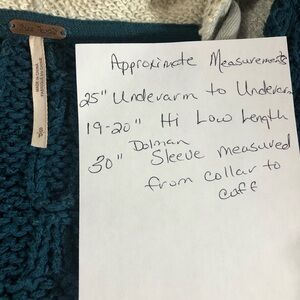 Approximate Measurements
25" Underarm to Underarm
19-20" Hi Low Length
Dolman
30" Sleeve measured
from collar to
cuff